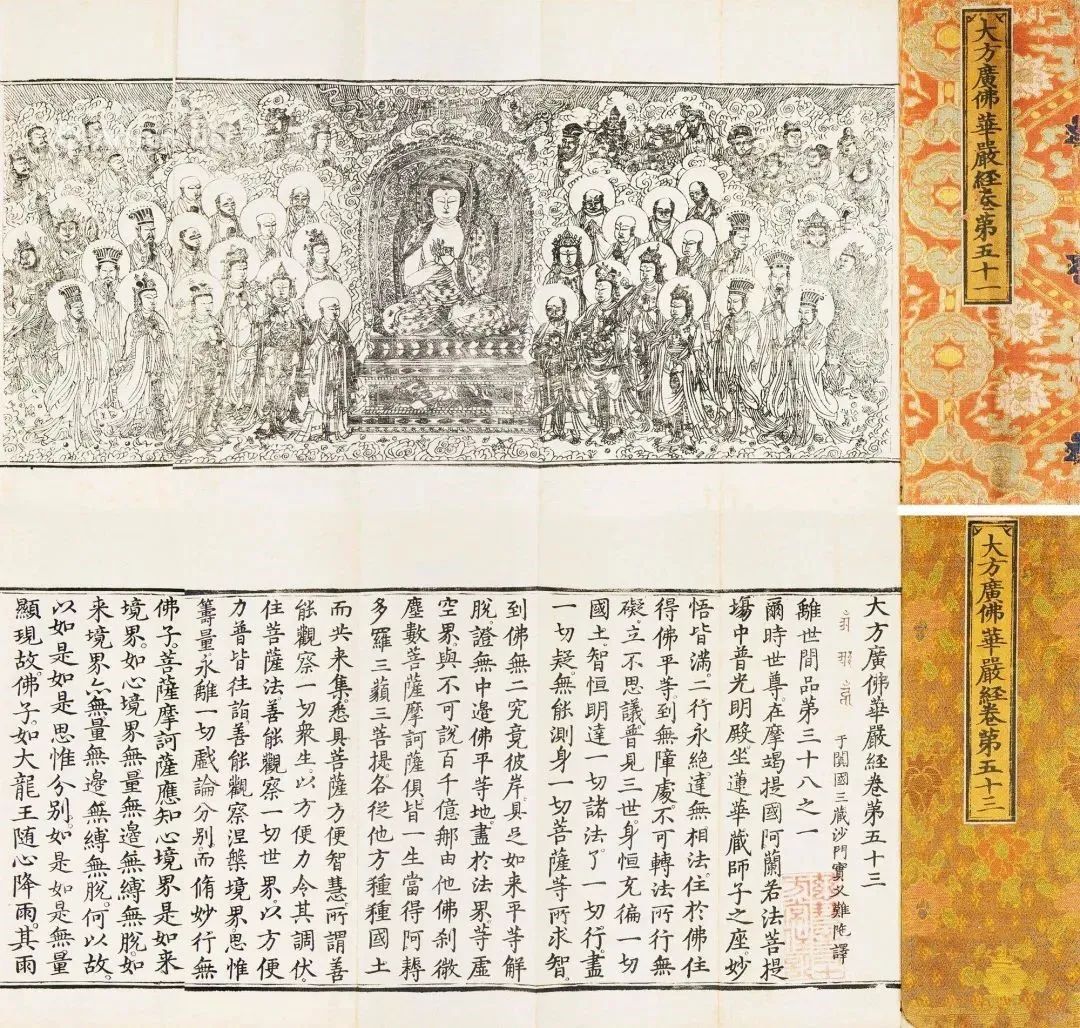 大方廣佛華嚴經卷第五十一
大方廣佛華嚴經卷第五十三
大方廣佛華嚴經卷第五十三
于闐國三藏沙門實叉難陁譯
離世間品第三十八之一
爾時世尊。在摩竭提國阿蘭若法菩提
塲中普光明殿。坐蓮華藏師子之座。妙
悟皆滿。二行永絕。達無相法。住於佛住
得佛平等。到無障處。不可轉法。所行無
礙。立不思議。普見三世。身恒充徧一切
國土。智恒明達一切諸法。了一切行。盡
一切疑。無能測身。一切菩薩等所求智。
到佛無二究竟彼岸。具足如来平等解
脫。證無中邊佛平等地。盡於法界。等虛
空界。與不可說百千億那由他佛刹微
塵數菩薩摩訶薩俱。皆一生當得阿耨
多羅三藐三菩提。各從他方種種國土
而共来集。悉具菩薩方便智慧。所謂善
能觀察一切衆生。以方便力令其調伏。
住菩薩法。善能觀察一切世界。以方便
力普皆往詣。善能觀察涅槃境界。思惟
籌量。永離一切戲論分別。而脩妙行無
佛子。菩薩摩訶薩應知心境界是如来
境界。如心境界無量無邊無縛無脫。如
来境界亦無量無邊無縛無脫。何以故。
以如是如是思惟分別。如是如是無量
顯現故。佛子。如大龍王随心降雨。其雨